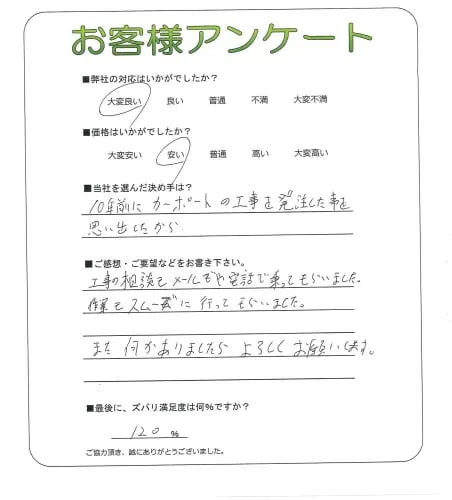 お客様アンケート
■弊社の対応はいかがでしたか?
大変良い 良い 普通 不満 大変不満
■価格はいかがでしたか?
大変安い 安い 普通 高い 大変高い
■当社を選んだ決め手は?
10年前に カーポートの工事を発注した事を
思い出したから
■ご感想・ご要望などをお書き下さい。
工事の相談もメールや電話で乗ってもらいました。
作業もスムーズに行ってもらいました。
また何かありましたら よろしくお願いします。
■最後に、ズバリ満足度は何%ですか?
120 %
ご協力頂き、誠にありがとうございました。